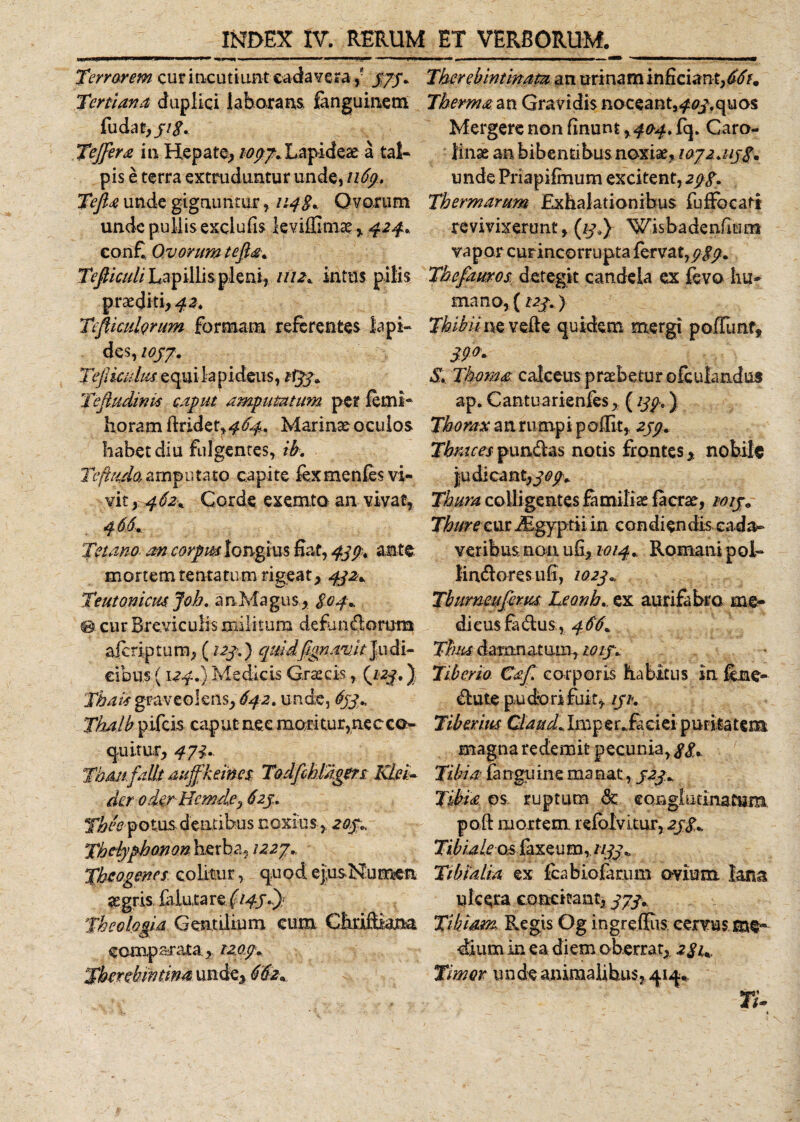 INDEX IV. RERUM ET VERBORUM.
Terrorem cur incutiunt cadavera, 575.
Tertiana duplici laborans sanguinem
sudat, 518.
Tesseræ in Hepate, 1097. Lapideæ à tal-
pis è terra extruduntur unde, 1169.
Testæ unde gignuntur, 1148. Ovorum
unde pullis exclusis levissimæ, 424.
conf. Ovorum testæ.
Testiculi Lapillis pleni, 1112. intus pilis
præditi, 42.
Testiculorum formam referentes lapi-
des, 1057.
Testiculus equi lapideus, 1133.
Testudinis caput amputatum per semi-
horam stridet, 464. Marinæ oculos
habet diu fulgentes, ib.
Testudo amputato capite sex menses vi-
vit, 462. Corde exemto an vivat,
466.
Tetano an corpus longius fiat, 439. ante
mortem tentatum rigeat, 432.
Teutonicus Joh. an Magus, 804.
Θ cur Breviculis militum defunctorum
ascriptum, (123.) quid signavit Judi-
cibus (124.) Medicis Græcis, (123.)
Thais graveolens, 642. unde, 653.
Thalb piscis caput nec moritur, nec co-
quitur, 473.
Thau fallt auff keines Todschlägers Klei-
der oder Hemde, 625.
Thée potus dentibus noxius, 205.
Thelyphonon herba, 1227.
Theogenes colitur, quod ejus Numen
ægris salutare (145.)
Theologia Gentilium cum Christiana
comparata, 1209.
Therebintina unde, 662.
Therebintinata an urinam inficiant, 661.
Thermæ an Gravidis noceant, 403. quos
Mergere non sinunt, 404. sq. Caro-
linæ an bibentibus noxiæ, 1072. 1158.
unde Priapismum excitent, 298.
Thermarum Exhalationibus suffocati
revivixerunt, (13.) Wisbadensium
vapor cur incorrupta servat, 989.
Thesauros detegit candela ex sevo hu-
mano, (123.)
Thibii ne veste quidem mergi possunt,
390.
S. Thomæ calceus præbetur osculandus
ap. Cantuarienses, (139.)
Thorax an rumpi possit, 259.
Thraces punctas notis frontes, nobile
judicant, 309.
Thura colligentes familiæ sacræ, 1015.
Thure cur Ægyptii in condiendis cada-
veribus non usi, 1014. Romani pol-
linctores usi, 1023.
Thurneuserus Leonh. ex aurifabro me-
dicus factus, 466.
Thus damnatum, 1015.
Tiberio Cæs. corporis habitus in sene-
ctute pudori fuit, 151.
Tiberius Claud. Imper. faciei puritatem
magna redemit pecunia, 88.
Tibia sanguine manat, 523.
Tibiæ os ruptum & conglutinatum
post mortem resolvitur, 258.
Tibiale os saxeum, 1133.
Tibialia ex scabiosarum ovium lana
ulcera concitant, 373.
Tibiam Regis Og ingressus cervus me-
dium in ea diem oberrat, 281.
Timor unde animalibus, 414.
Ti-